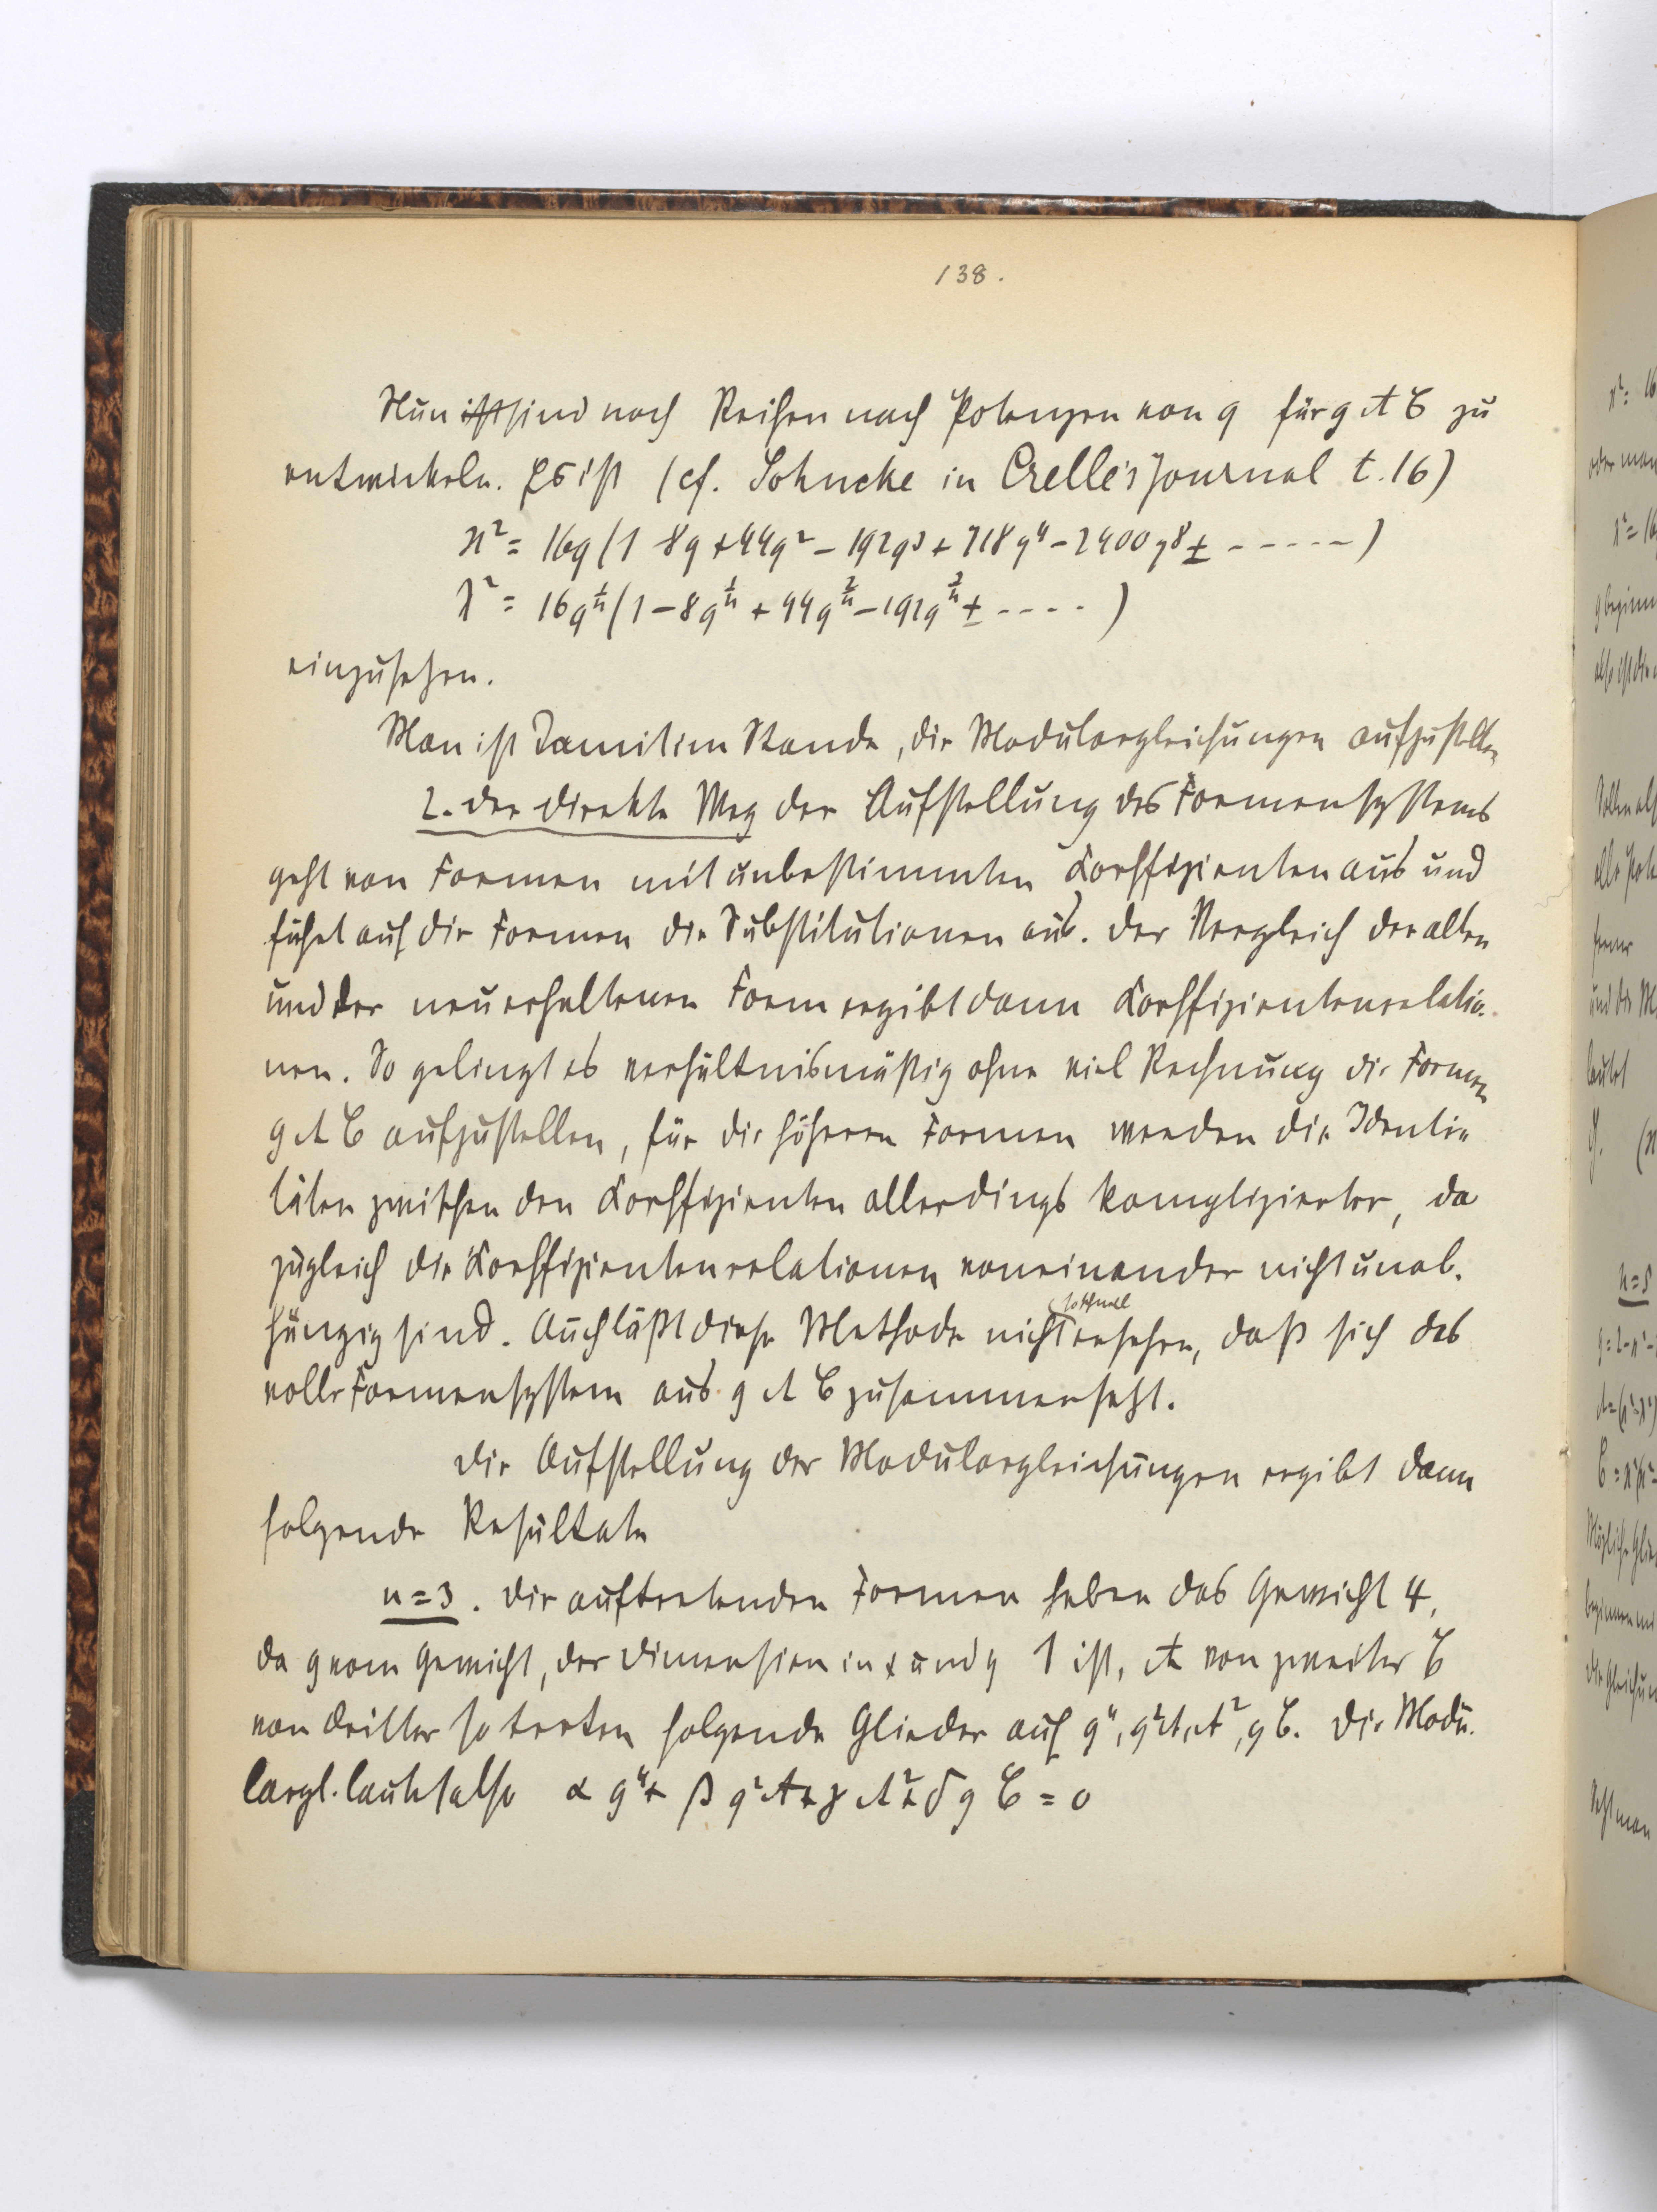 138.
Nun ist sind noch Reihen nach Potenzen von q für g A C zu
entwickeln. Es ist (cf. Sohncke in Crelle's Journal t. 16)
ϰ² = 16q (1 - 8q + 44q² - 192q³ + 718q⁴ - 2400q⁸ ± - - - - - )
λ² = 16q^{1/n} (1 - 8q^{1/n} + 44q^{2/n} - 192q^{3/n} ± - - - - )
einzusetzen.
Man ist damit im Stande, die Modulargleichungen aufzustellen
2. Der direkte Weg der Aufstellung des Formensystems
geht von Formen mit unbestimmten Koeffizienten aus und
führt auf die Formen die Substitutionen aus. Der Vergleich der alten
und der neuerhaltenen Form ergibt dann Koeffizientenrelatio-
nen. So gelingt es verhältnismäßig ohne viel Rechnung die Formen
g A C aufzustellen, für die höheren Formen werden die Identi-
täten zwischen den Koeffizienten allerdings komplizierter, da
zugleich die Koeffizientenrelationen voneinander nicht unab-
hängig sind. Auch läßt diese Methode nicht so schnell ersehen, daß sich das
volle Formensystem aus g A C zusammensetzt.
Die Aufstellung der Modulargleichungen ergibt dann
folgende Resultate
n = 3. Die auftretenden Formen haben das Gewicht 4,
da g vom Gewicht, der Dimension in x und y 1 ist, A von zweiter C
von dritter so treten folgende Glieder auf g⁴, g²A, A², g C. Die Modu-
largl. lautet also α g⁴ + β g² A + γ A² + δ g C = 0